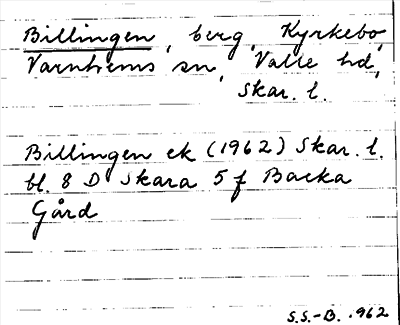 Billingen, berg, Kyrkebo,
Varnhems sn, Valle hd,
Skar. l.
Billingen ek (1962) Skar. l.
bl. 8 D Skara 5 f Backa
Gård
S.S.-B. .962